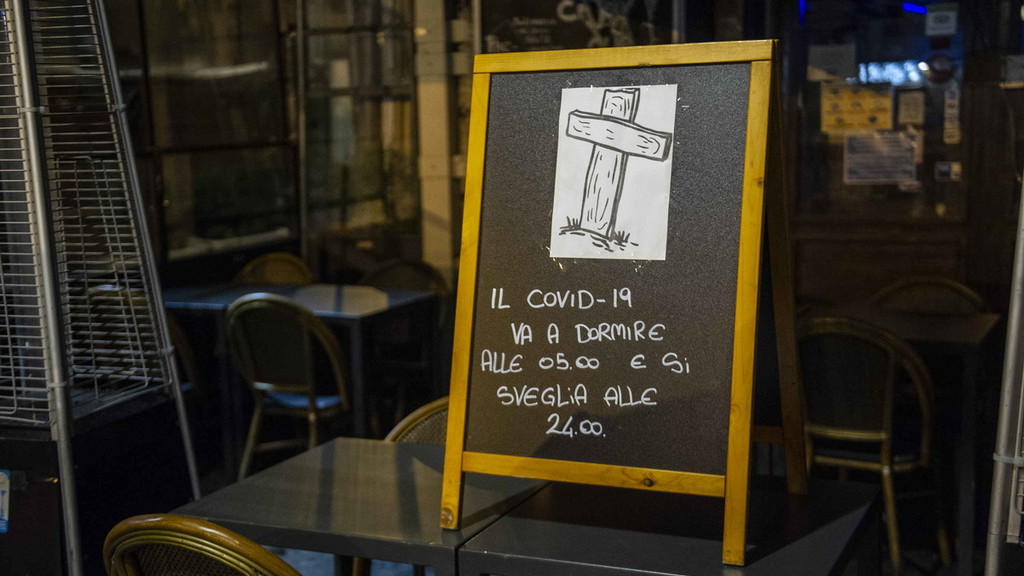 IL COVID-19
VA A DORMIRE
ALLE 05.00 E Si
SVEGLiA ALLE
24.00.